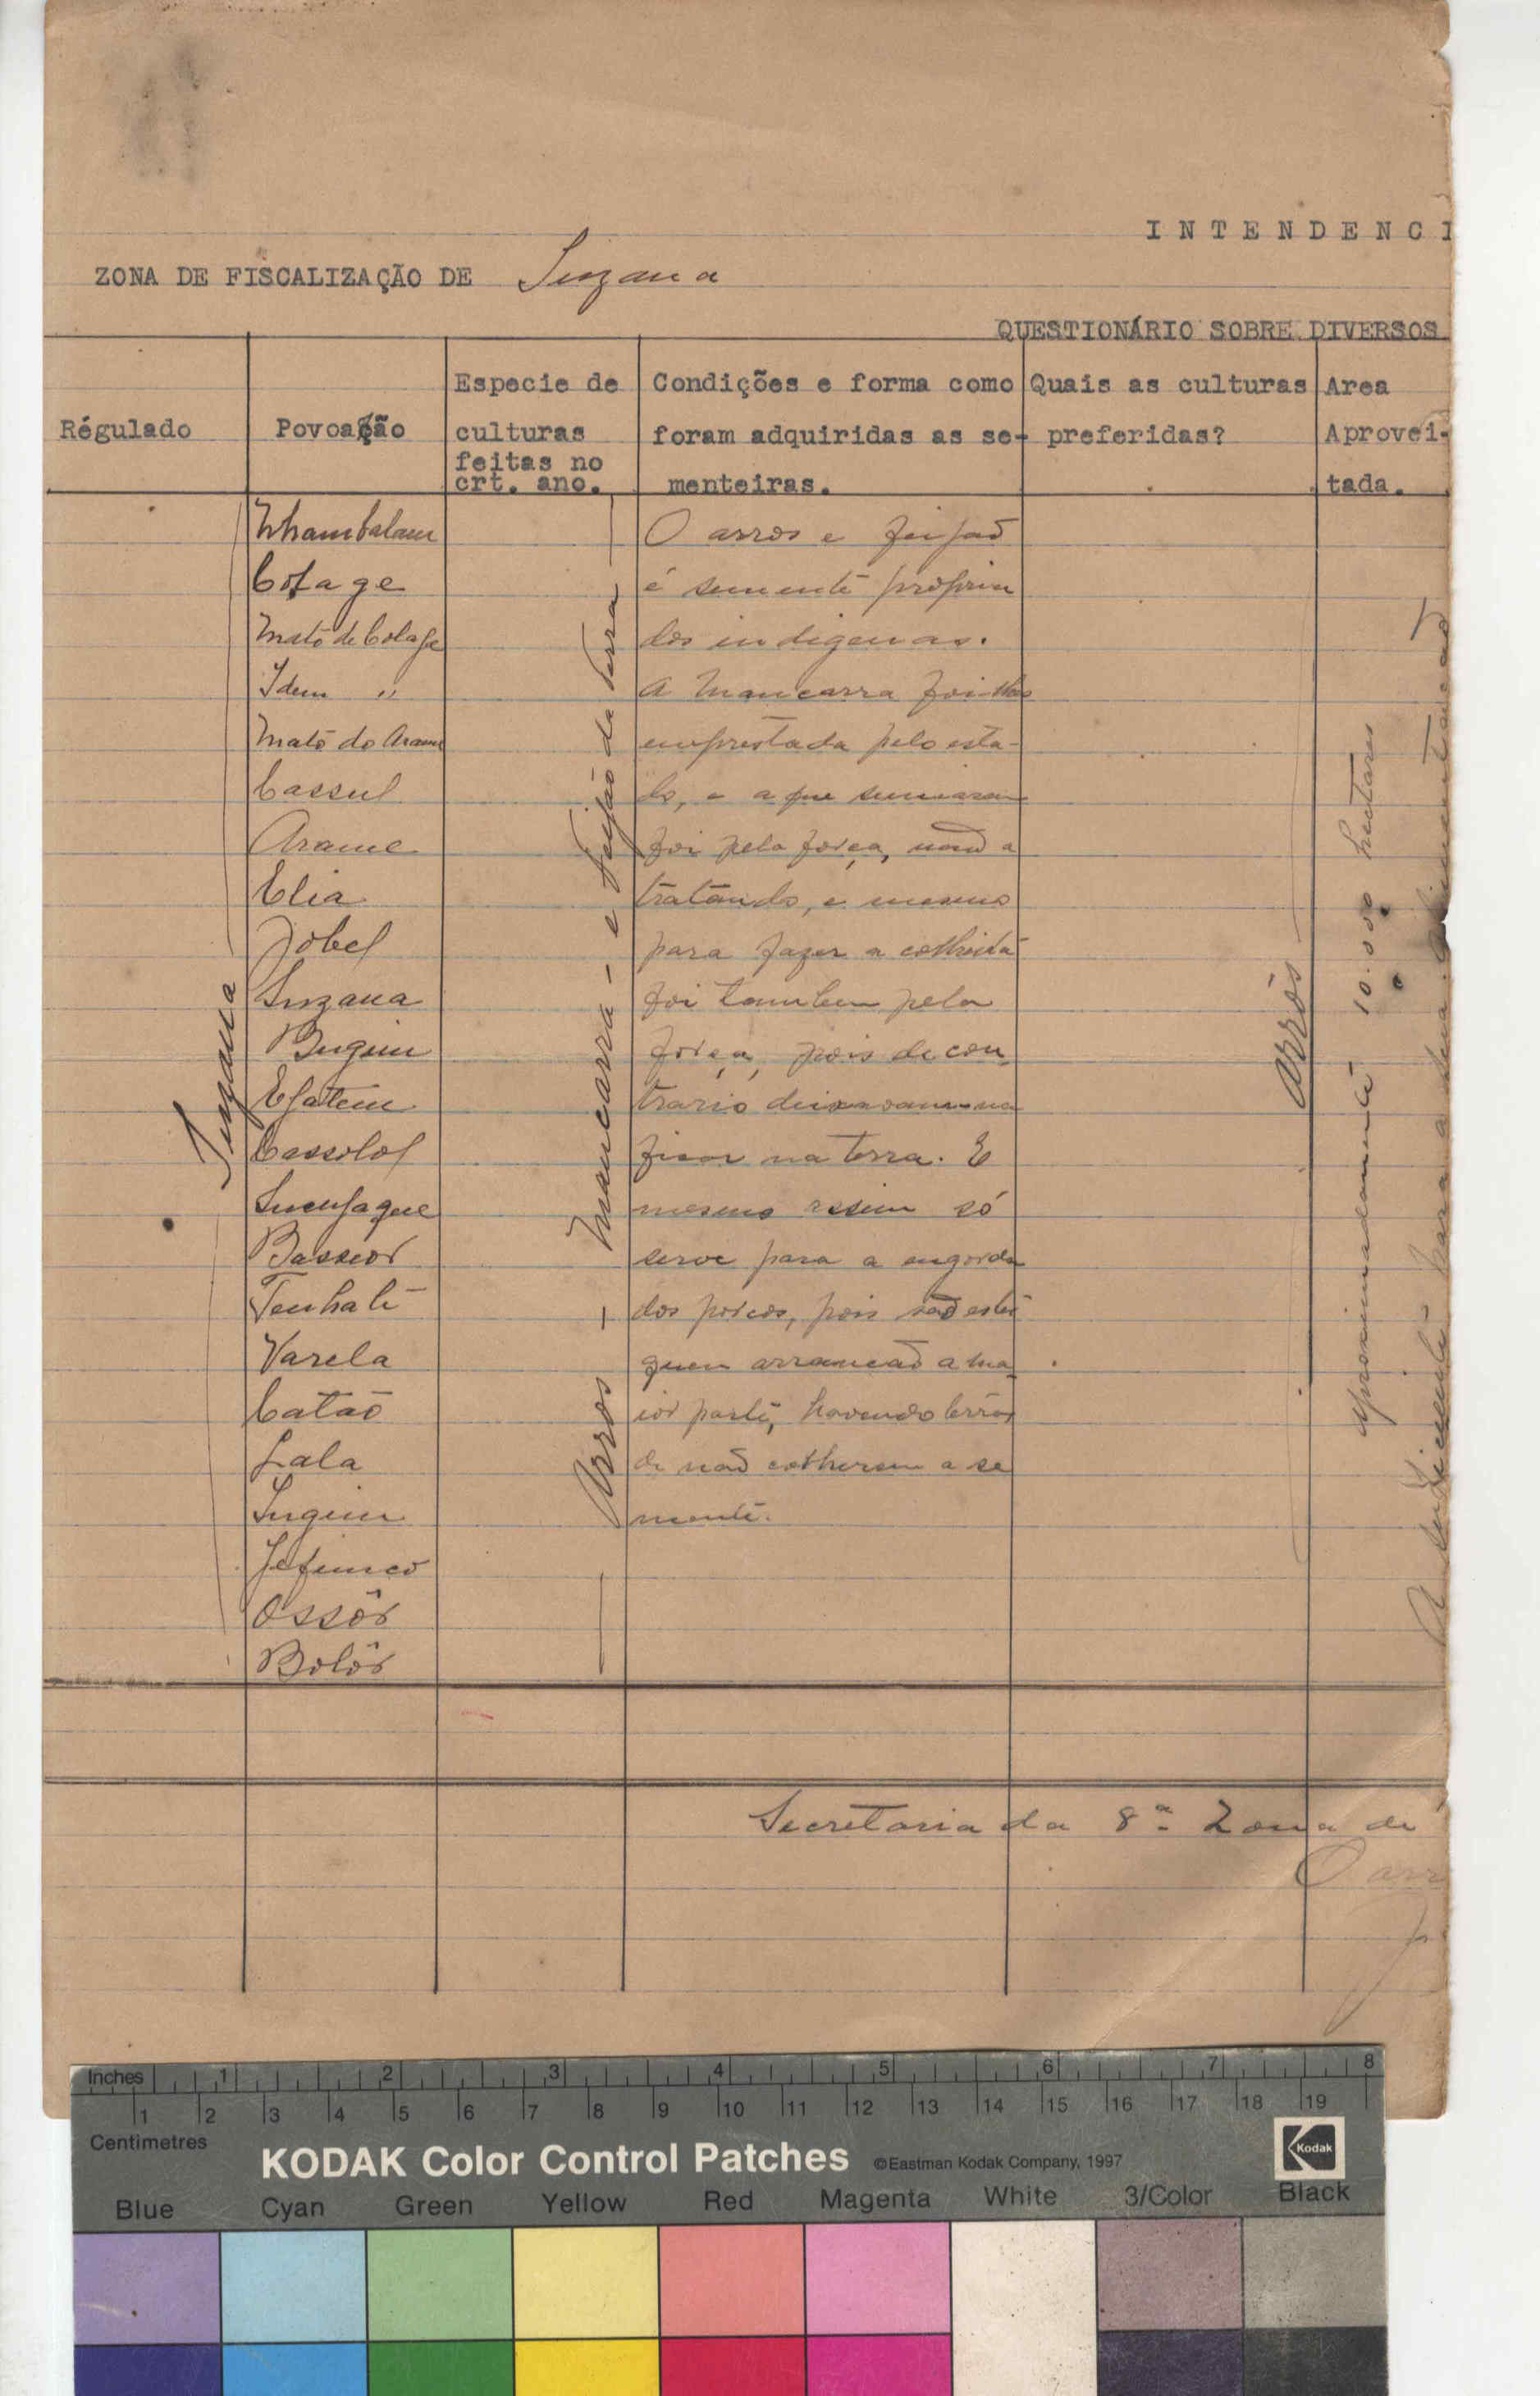 INTENDENCI
ZONA DE FISCALIZAÇÃO DE Suzana
QUESTIONÁRIO SOBRE DIVERSOS
Régulado
Povoação
Especie de
culturas
feitas no
crt. ano.
Condições e forma como
foram adquiridas as se-
menteiras.
Quais as culturas
preferidas?
Area
Aprovei-
tada.
Suzana
Nhambalam
Colage
Mato de Colage
Idem "
Mato do Arame
Cassul
Arame
Elia
Jobel
Suzana
Bugim
Efatem
Cassolol
Sucujaque
Basseor
Tenhate
Varela
Catão
Lala
Jufunco
Ossôr
Bolôr
Arros - Mancarra - e feijão da terra
O arros e feijão
é semente propria
dos indigenas.
A Mancarra foi-lhes
emprestada pelo esta-
do, e a que semearam
foi pela força, não a
tratando, e mesmo
para fazer a colheita
foi tambem pela
força, pois de con-
trario deixavam-na
ficar na terra. E
mesmo assim só
serve para a engorda
dos porcos, pois são estes
quem arrancão a ma-
ior parte, havendo
de não colherem a se
mente.
Arrôs
aproximadamente 10.000 hectares
para a sua alimentação
Secretaria da 8ª Zona de
O arr
Inches 1 2 3 4 5 6 7 8
1 2 3 4 5 6 7 8 9 10 11 12 13 14 15 16 17 18 19
Centimetres
KODAK Color Control Patches ©Eastman Kodak Company, 1997 Kodak
Blue Cyan Green Yellow Red Magenta White 3/Color Black